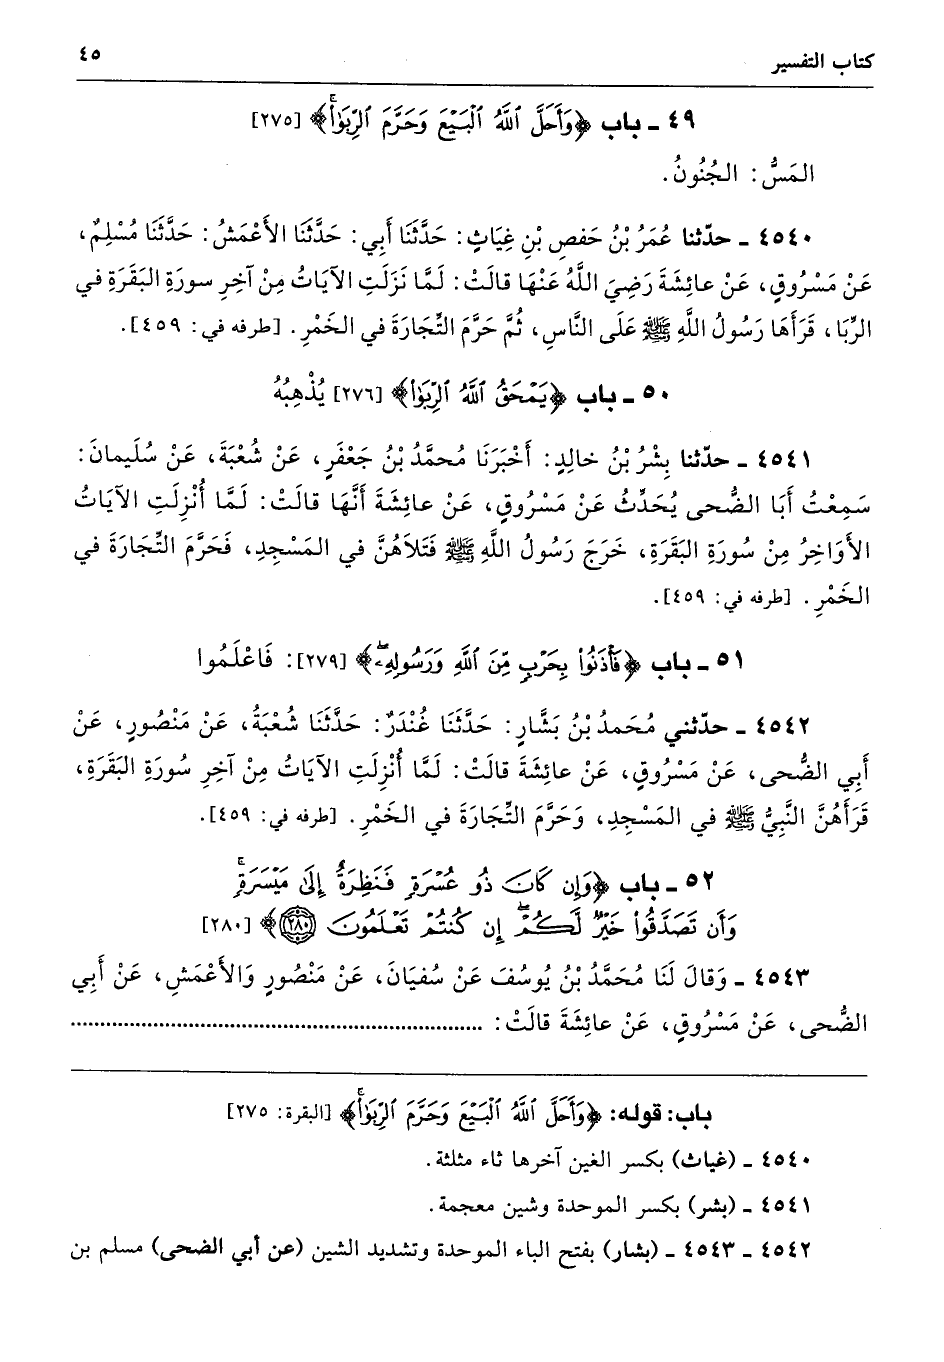 كتاب التفسير
٤٥
٤٩ ـ باب ﴿وَأَحَلَّ ٱللَّهُ ٱلْبَيْعَ وَحَرَّمَ ٱلرِّبَوٰا۟ۚ﴾ [٢٧٥]
المَسُّ: الجُنُونُ.
٤٥٤٠ ـ حدّثنا عُمَرُ بْنُ حَفصِ بْنِ غِيَاثٍ: حَدَّثَنَا أَبِي: حَدَّثَنَا الأَعْمَشُ: حَدَّثَنَا مُسْلِمٌ،
عَنْ مَسْرُوقٍ، عَنْ عائِشَةَ رَضِيَ اللَّهُ عَنْهَا قالَتْ: لَمَّا نَزَلَتِ الآيَاتُ مِنْ آخِرِ سورَةِ البَقَرَةِ في
الرِّبَا، قَرَأَهَا رَسُولُ اللَّهِ ﷺ عَلَى النَّاسِ، ثُمَّ حَرَّمَ التِّجَارَةَ في الخَمْرِ. [طرفه في: ٤٥٩].
٥٠ ـ باب ﴿يَمْحَقُ ٱللَّهُ ٱلرِّبَوٰا۟﴾ [٢٧٦] يُذْهِبُهُ
٤٥٤١ ـ حدّثنا بِشْرُ بْنُ خالِدٍ: أَخْبَرَنَا مُحمَّدُ بْنُ جَعْفَرٍ، عَنْ شُعْبَةَ، عَنْ سُلَيمانَ:
سَمِعْتُ أَبَا الضُّحى يُحَدِّثُ عَنْ مَسْرُوقٍ، عَنْ عائِشَةَ أَنَّهَا قالَتْ: لَمَّا أُنْزِلَتِ الآيَاتُ
الأَوَاخِرُ مِنْ سُورَةِ البَقَرَةِ، خَرَجَ رَسُولُ اللَّهِ ﷺ فَتَلاَهُنَّ في المَسْجِدِ، فَحَرَّمَ التِّجَارَةَ في
الخَمْرِ. [طرفه في: ٤٥٩].
٥١ ـ باب ﴿فَأْذَنُوا۟ بِحَرْبٍ مِّنَ ٱللَّهِ وَرَسُولِهِۦۖ﴾ [٢٧٩]: فَاعْلَمُوا
٤٥٤٢ ـ حدّثني مُحَمدُ بْنُ بَشَّارٍ: حَدَّثَنَا غُنْدَرٌ: حَدَّثَنَا شُعْبَةُ، عَنْ مَنْصُورٍ، عَنْ
أَبِي الضُّحى، عَنْ مَسْرُوقٍ، عَنْ عائِشَةَ قالَتْ: لَمَّا أُنْزِلَتِ الآيَاتُ مِنْ آخِرِ سُورَةِ البَقَرَةِ،
قَرَأَهُنَّ النَّبِيُّ ﷺ في المَسْجِدِ، وَحَرَّمَ التِّجَارَةَ في الخَمْرِ. [طرفه في: ٤٥٩].
٥٢ ـ باب ﴿وَإِن كَانَ ذُو عُسْرَةٍ فَنَظِرَةٌ إِلَىٰ مَيْسَرَةٍۚ
وَأَن تَصَدَّقُوا۟ خَيْرٌ لَّكُمْۖ إِن كُنتُمْ تَعْلَمُونَ ۝٢٨٠﴾ [٢٨٠]
٤٥٤٣ ـ وَقالَ لَنَا مُحَمَّدُ بْنُ يُوسُفَ عَنْ سُفيَانَ، عَنْ مَنْصُورٍ وَالأَعْمَشِ، عَنْ أَبِي
الضُّحى، عَنْ مَسْرُوقٍ، عَنْ عائِشَةَ قالَتْ: ...............................................................
باب: قوله: ﴿وَأَحَلَّ ٱللَّهُ ٱلْبَيْعَ وَحَرَّمَ ٱلرِّبَوٰا۟ۚ﴾ [البقرة: ٢٧٥]
٤٥٤٠ ـ (غياث) بكسر الغين آخرها ثاء مثلثة.
٤٥٤١ ـ (بشر) بكسر الموحدة وشين معجمة.
٤٥٤٢ ـ ٤٥٤٣ ـ (بشار) بفتح الباء الموحدة وتشديد الشين (عن أبي الضحى) مسلم بن